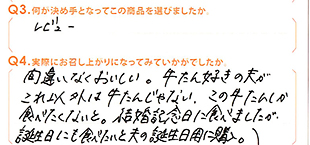 Q3.何が決め手となってこの商品を選びましたか。
レビュー
Q4.実際にお召し上がりになってみていかがでしたか。
間違いなくおいしい。牛たん好きの夫が
これ以外は牛たんじゃない、この牛たんしか
食べたくないと。結婚記念日に食べましたが、
誕生日にも食べたいと夫の誕生日用に購入。)